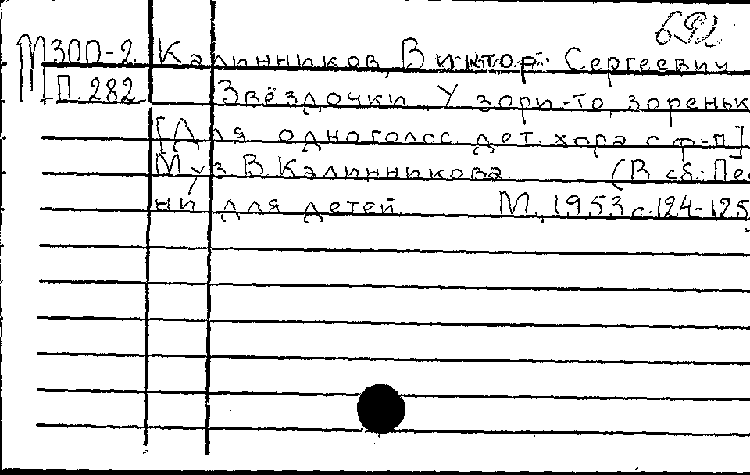 692
М300-2 Калинников, Виктор Сергеевич
П.282 Звёздочки. У зори-то, зореньк
[Для одноголосс. дет. хора с ф-п]
Муз. В. Калинникова (В сб.: Пес
ни для детей. М., 1953 с.124-125